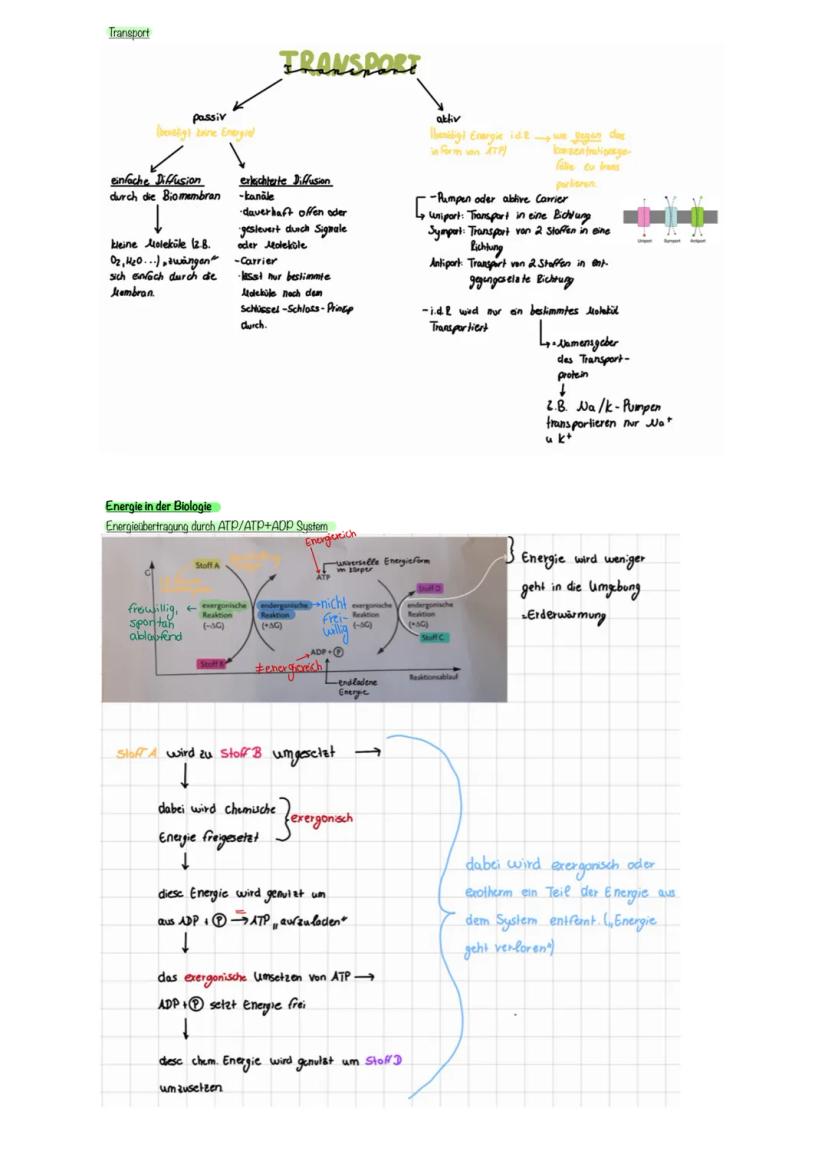 Transport
TRANSPORT
Transport
passiv
(benötigt keine Energie)
einfache Diffusion
durch die Biomembran
kleine Moleküle (z.B.
O₂, H₂O ...) „zwängen"
sich einfach durch die
Membran.
erleichterte Diffusion
-Kanäle
·dauerhaft offen oder
·gesteuert durch Signale
oder Moleküle
-Carrier
·lässt nur bestimmte
Moleküle nach dem
Schlüssel-Schloss-Prinzip
durch.
aktiv
(benötigt Energie i.d.R
in Form von ATP)
→ um gegen das
Konzentrationsge-
fälle zu trans
portieren.
-Pumpen oder aktive Carrier
Uniport: Transport in eine Richtung
Symport: Transport von 2 Stoffen in eine
Richtung
Antiport: Transport von 2 Stoffen in ent-
gegengesetzte Richtung
Uniport Symport Antiport
-i.d.R wird nur ein bestimmtes Molekül
Transportiert
Namensgeber
des Transport-
protein
z.B. Na/K-Pumpen
transportieren nur Na⁺
u K⁺
Energie in der Biologie
Energieübertragung durch ATP/ATP+ADP System
Energiereich
G
Stoff A
universelle Energieform
im Körper
ATP
Stoff D
freiwillig,
spontan
ablaufend
exergonische
Reaktion
(−ΔG)
endergonische
Reaktion
(+ΔG)
→nicht
frei-
willig
exergonische
Reaktion
(−ΔG)
endergonische
Reaktion
(+ΔG)
Stoff C
Stoff B
≠energiereich
ADP + P
entladene
Energie
Reaktionsablauf
Energie wird weniger
geht in die Umgebung
Erderwärmung
Stoff A wird zu Stoff B umgesetzt →
dabei wird chemische
Energie freigesetzt
exergonisch
diese Energie wird genutzt um
aus ADP + P → ATP „aufzuladen"
das exergonische Umsetzen von ATP →
ADP + P setzt Energie frei
diese chem. Energie wird genutzt um Stoff D
umzusetzen
dabei wird exergonisch oder
exotherm ein Teil der Energie aus
dem System entfernt. („Energie
geht verloren")